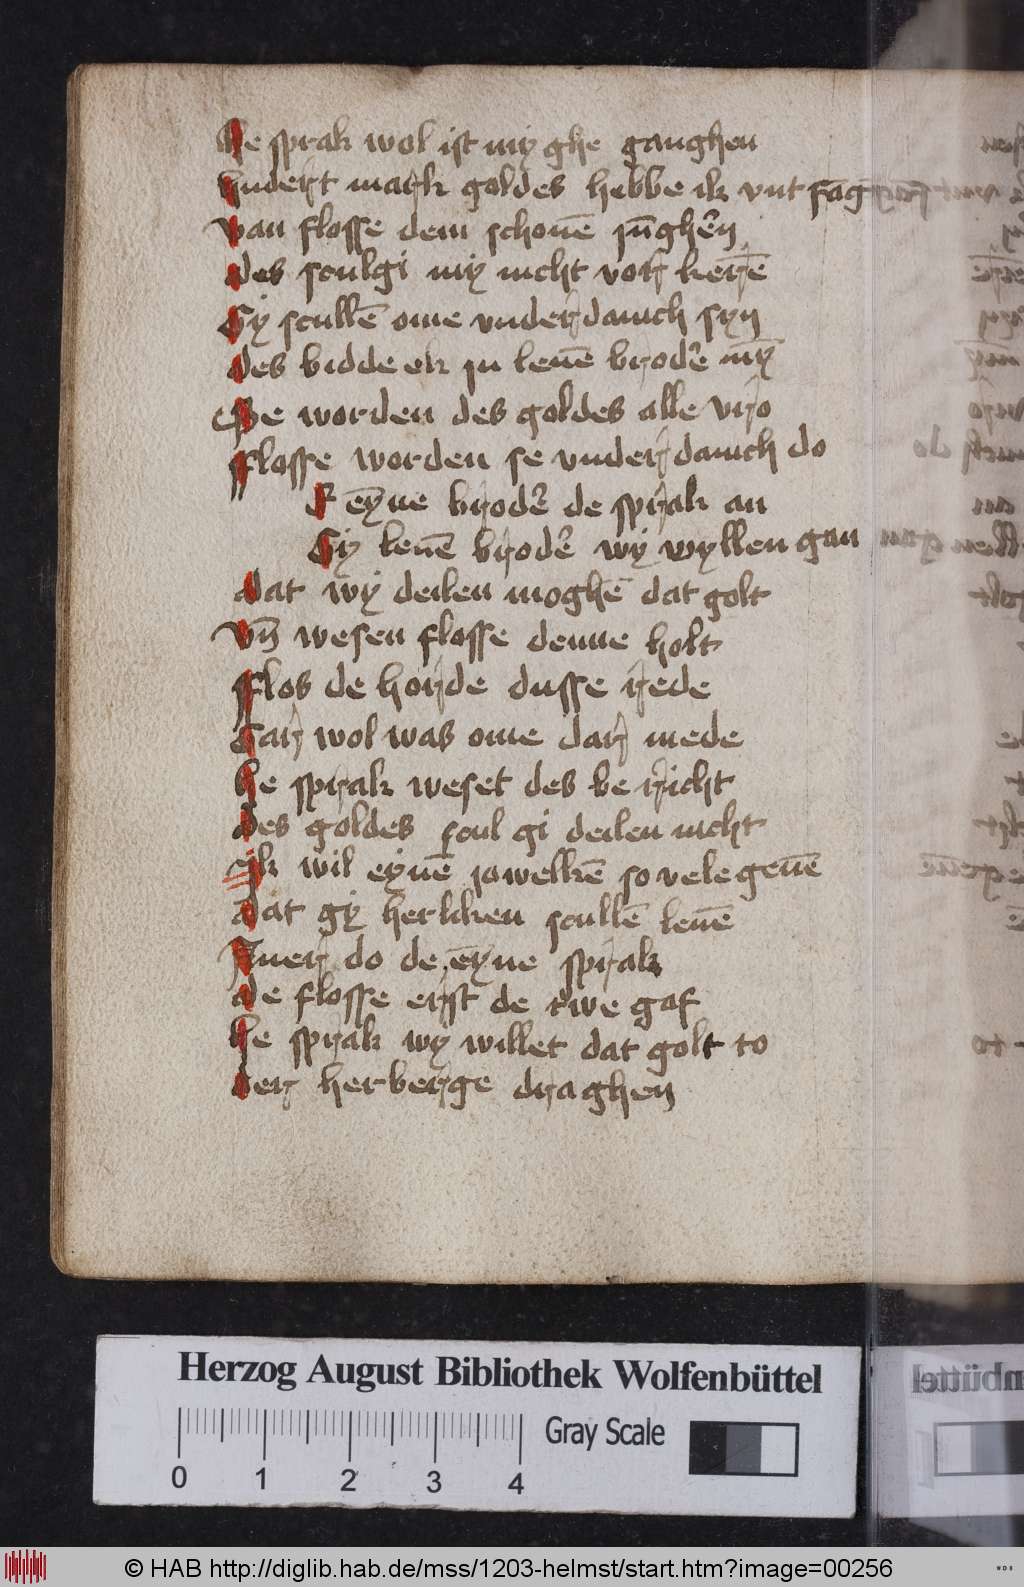 He sprak wol ist my ghe ganghen
hndert mark goldes hebbe ik vnt fāg
Van flosse dem schonē jn̄gherñ
des sculgi my nicht vorkerē
Gy scullē ome vnderdanich syn
des bidde ek ju leuē broder mȳ
Se worden des goldes alle vro
Flosse worden se vnderdanich do
E eyne broder de sprak an
Gy leuē broder wy wyllen gan
dat wy deilen moghē dat golt
Vn̄ wesen flosse denne holt
Flos de horde dusse rede
Gar wol was ome dar mede
he sprak weset des be richt
des goldes scul gi deilen nicht
Ik wil eynē jowelkē so vele geuē
dat gy herliken scullē leuē
Auer do de eyne sprak
de flosse erst de rwe gaf
he sprak wy willet dat golt to
der herberge draghen
Herzog August Bibliothek Wolfenbüttel
Gray Scale
0 1 2 3 4
© HAB http://diglib.hab.de/mss/1203-helmst/start.htm?image=00256